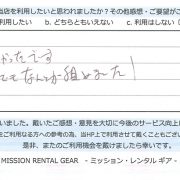 当店を利用したいと思われましたか？その他感想・ご要望がご
利用したい　b. どちらともいえない　c. 利用はしない（
かったです
てもなんとか組めました！
いました。戴いたご感想・意見を大切に今後のサービス向上
をご利用なさる方への参考の為、当HP上で使用させて戴くこともござい
是非、またのご利用機会を戴けましたら幸いです。
MISSION RENTAL GEAR　- ミッション・レンタル ギア -